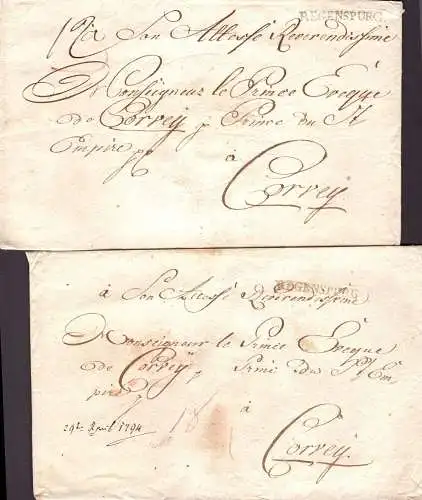 REGENSPURG.
à Son Altesse Reverendissime
Monseigneur le Prince Eveque
de Corvey, Prince du St
Empire
à
Corvey.
REGENSPURG
à Son Altesse Reverendissime
Monseigneur le Prince Eveque
de Corveÿ, Prince du St Em
pire
à
29t April 1794
18
Corvey.